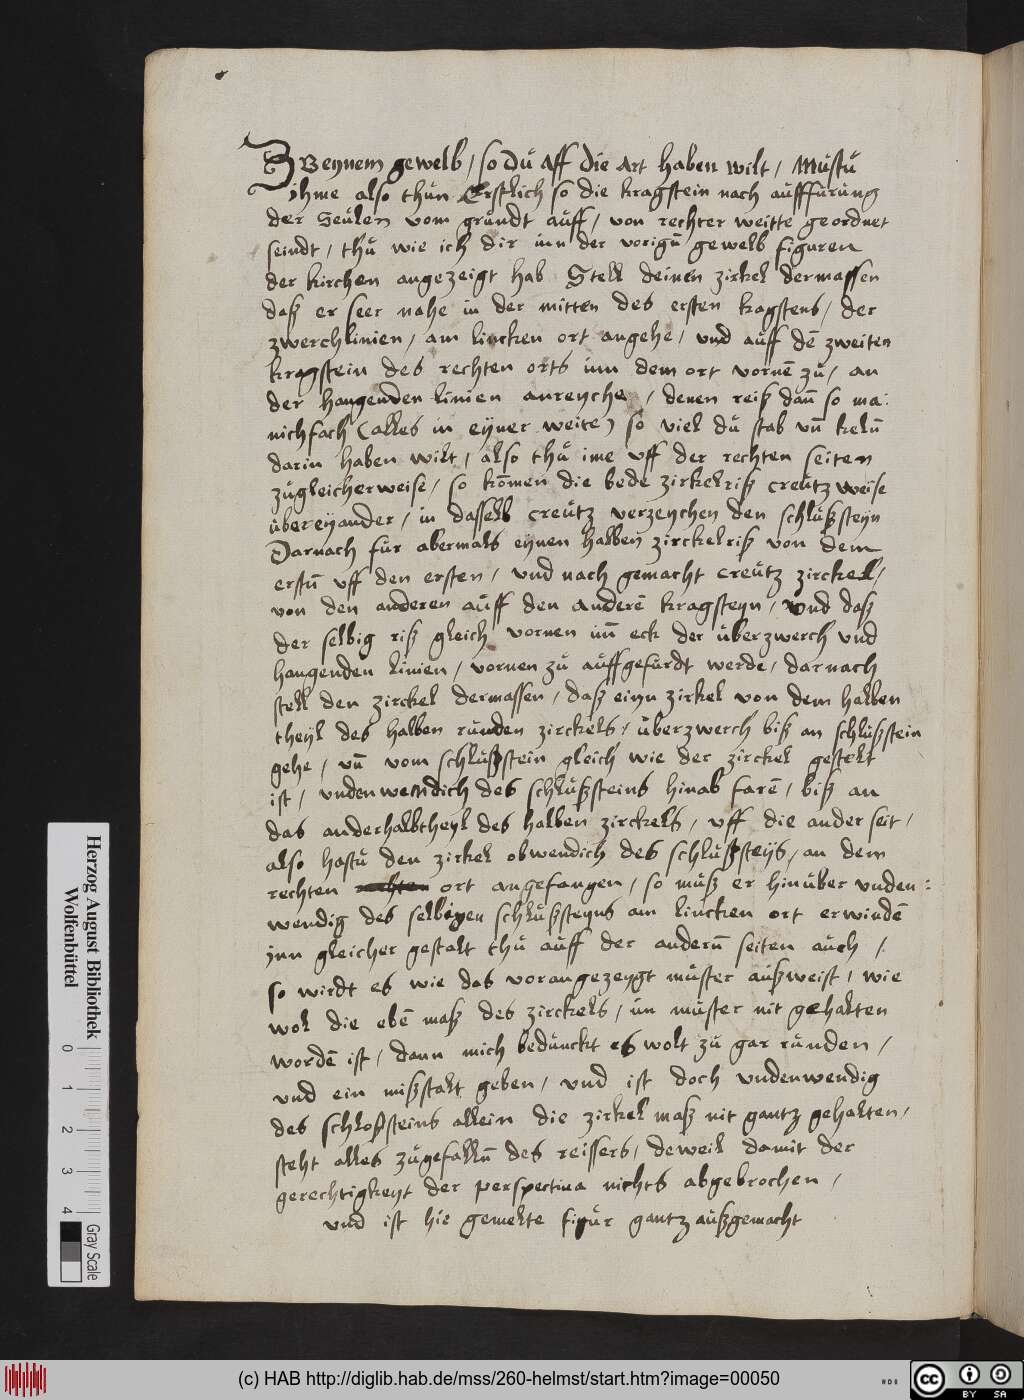 Zu eynem gewelb, so du aff die art haben wilt, mustu
ihme also thun Erstlich so die kragstein nach aufffurung
der Seulen vom grundt auff, von rechter weitte geordnet
seindt, thu wie ich dir inn der vorigū gewelb figuren
der kirchen angezeigt hab Stell deinen zirkel dermassen
daß er seer nahe in der mitten des ersten kragstens, der
zwerchlinien, am lincken ort angehe, und auff dē zweiten
kragstein des rechten orts inn dem ort vornē zu, an
der hangenden linien anreyche, denen reiß dañ so ma:
nichfach (alles in eyner weite) so viel du stab vñ kelū
darin haben wilt, also thu ime vff der rechten seiten
zugleicherweise, so kōmen die bede zirkelriß creutzweise
ubereyander, in dasselb creutz verzeychen den schlußsteyn
Darnach für abermals eynen halben zirckelriß von dem
erstū vff den ersten, vnd nach gemacht creutz zirckel,
von den anderen auff den anderē kragsteyn, vnd daß
der selbig riß gleich vornen inn eck der uberzwerch vnd
hangenden linien, vornen zu auffgefurdt werde, darnach
stell den zirckel dermassen, daß eiyn zirkel von dem halben
theyl des halben runden zirckels, uberzwerch biß an schlußstein
gehe, vñ vom schlußstein gleich wie der zirckel gestelt
ist, vndenwendich des schlußsteins hinab farē, biß an
das anderhalbtheyl des halben zirckels, vff die ander seit,
also hastu den zirkel obwendich des schlußsteys, an dem
rechten ort angefangen, so muß er hinuber vnden:
wendig des selbigen schlußsteyns am lincken ort erwindē
jnn gleicher gestalt thu auff der anderū seiten auch,
so wirdt es wie das vorangezeygt muster außweist, wie
wol die ebē maß des zirckels, im muster nit gehalten
wordē ist, dann mich bedunckt es wolt zu gar runden,
vnd ein mißstalt geben, vnd ist doch vndenwendig
des schloßsteins allein die zirkel maß nit gantz gehalten,
steht alles zugefallū des reissers, deweil damit der
gerechtigkeyt der perspectiua nichts abgebrochen,
vnd ist hie gemelte figur gantz außgemacht
Herzog August Bibliothek
Wolfenbüttel
0 1 2 3 4
Gray Scale
(c) HAB http://diglib.hab.de/mss/260-helmst/start.htm?image=00050
cc BY SA